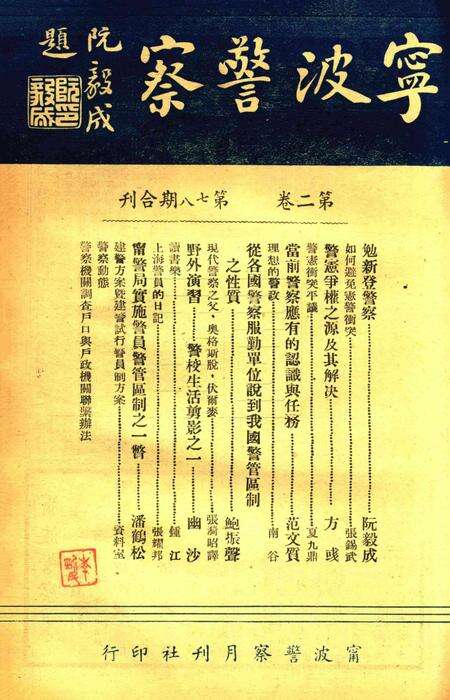 寧波警察
阮毅成
題
第二卷　第七八期合刊
勉新登警察……阮毅成
如何避免憲警衝突……張錫武
警憲爭權之源及其解決……方彧
警憲衝突平議……夏九鼎
當前警察應有的認識與任務……范文質
理想的警政……南谷
從各國警察服勤單位說到我國警管區制
之性質……鮑振聲
現代警察之父，奧格斯脫，伏爾麥……張菊昭譯
野外演習……警校生活剪影之一……幽沙
讀書樂……鍾江
上海警員的日記……張耀邦
甯警局實施警員警管區制之一瞥……潘鶴松
建警方案暨建警試行警員制方案……資料室
警察動態
警察機關調查戶口與戶政機關聯繫辦法
甯波警察月刊社印行